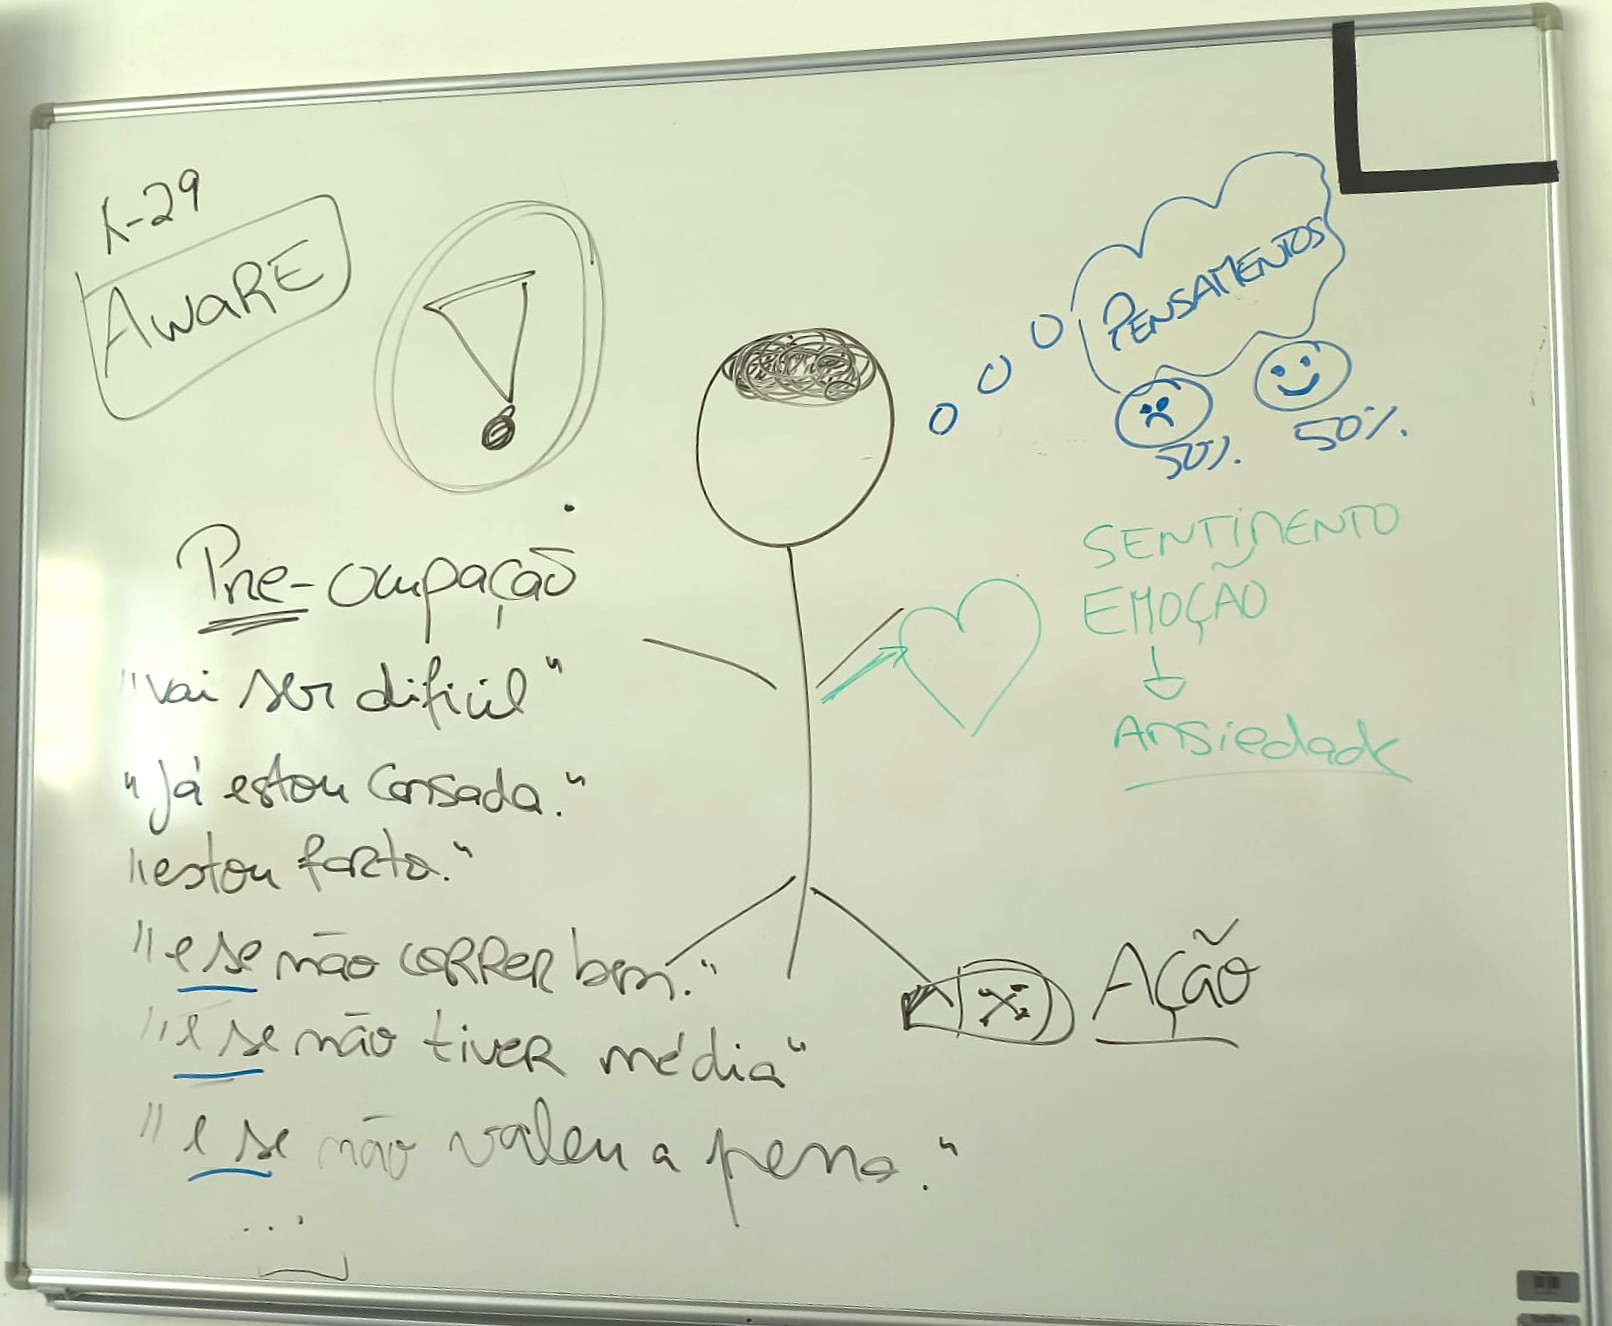 K-29
AWARE
PENSAMENTOS
50%. 50%.
SENTIMENTO
EMOÇÃO
Ansiedade
Pre-ocupação
"vai ser difícil"
"Já estou cansada."
"estou farto."
"e se não correr bem."
"e se não tiver média"
"e se não valeu a pena."
...
Ação